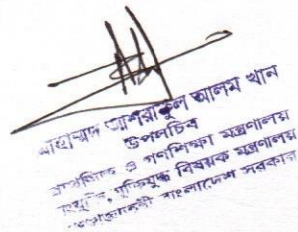 মোহাম্মদ আশরাফুল আলম খান
উপসচিব
ও গণশিক্ষা মন্ত্রণালয়
মুক্তিযুদ্ধ বিষয়ক মন্ত্রণালয়
বাংলাদেশ সরকার